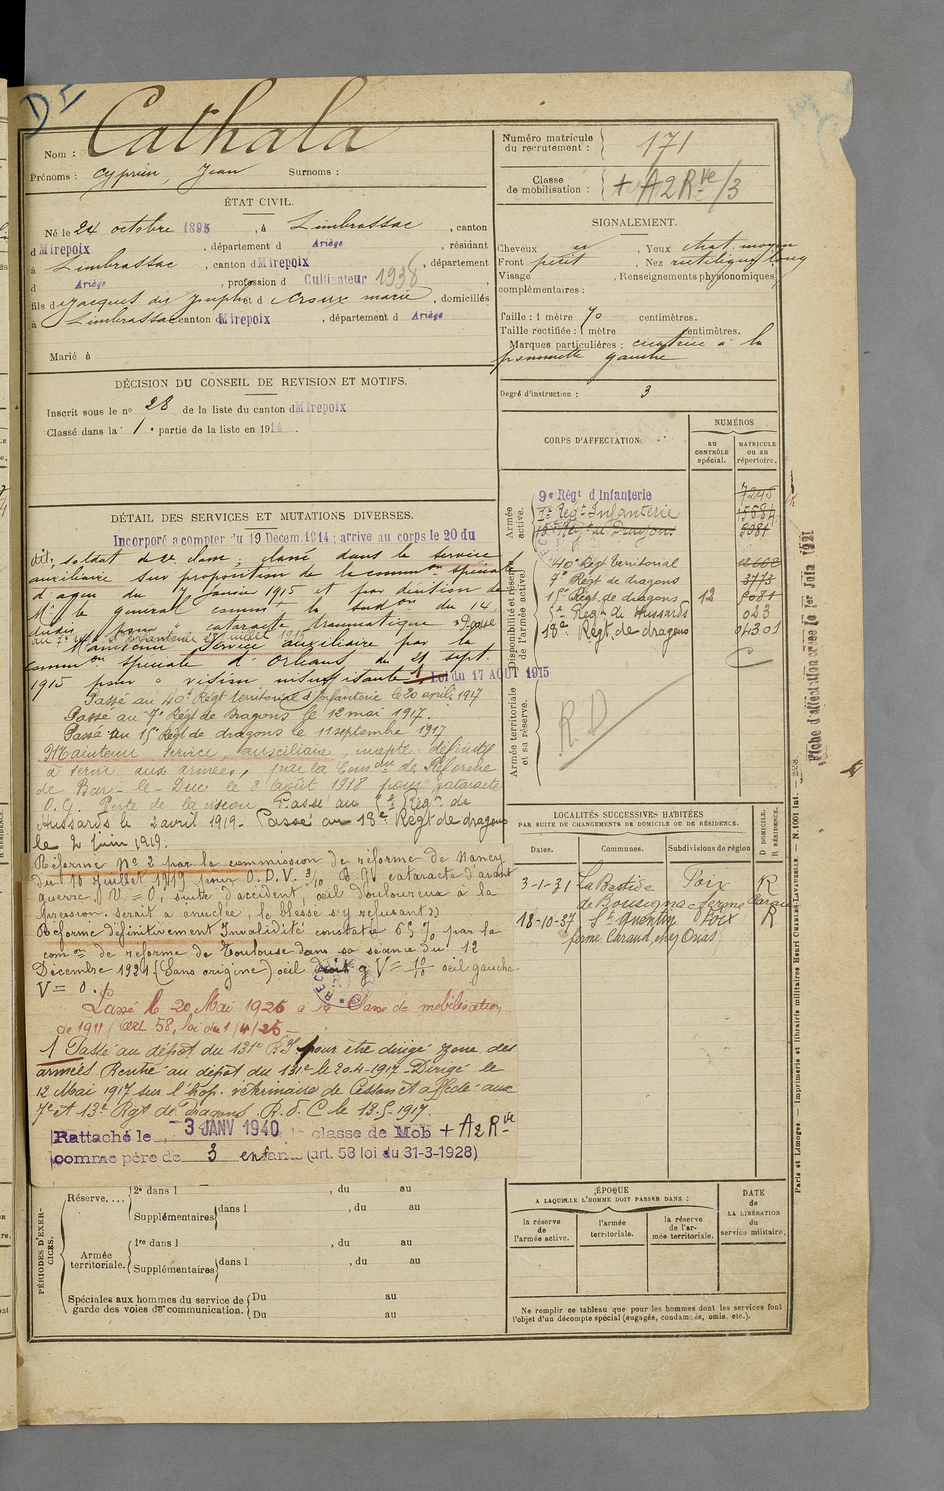 D I
Nom : Cathala
Prénoms : Cyprien, Jean Surnoms :
ÉTAT CIVIL.
Né le 24 octobre 1895, à Limbrassac, canton
d Mirepoix, département d Ariège, résidant
à Limbrassac, canton d Mirepoix, département
d Ariège, profession d Cultivateur 1938
fils d Jacques dit Joseph et d Croux marie, domiciliés
à Limbrassac canton d Mirepoix, département d Ariège
Marié à
DÉCISION DU CONSEIL DE REVISION ET MOTIFS.
Inscrit sous le no 28 de la liste du canton d Mirepoix
Classé dans la 1e partie de la liste en 1914.
DÉTAIL DES SERVICES ET MUTATIONS DIVERSES.
Incorporé a compter du 19 Decem. 1914 ; arrive au corps le 20 du
dit, soldat de 2e classe, classé dans le service
auxiliaire sur proposition de la common spéciale
d'agen du 7 janvier 1915 et par décision de
Mr le général commt la subdon du 14
dudit pour " cataracte traumatique " Passé
au juillet 1915
Maintenu service auxiliaire par la
common spéciale d'Orléans du 21 sept.
1915 pour " vision insuffisante 1 Loi du 17 AOUT 1915
Passé au 40e Régt territorial d'Infanterie le 20 avril 1917
Passé au 7e Régt de Dragons le 12 mai 1917.
Passé au 15e Regt de dragons le 11 septembre 1917
Maintenu Service auxiliaire, inapte définitif
à servir aux armées, par la Comon de Réforme
de Bar-le-Duc le 8 août 1918 pour cataracte
O.G. Perte de la vision Passé au Régt de
Hussards le 2 avril 1919. Passé au 18e Régt de dragons
le 2 juin 1919.
Réformé No 2 par la commission de réforme de Nancy
du 10 juillet 1919 pour O.D.V. 3/10 cataracte d'avant
guerre. V = 0, suite d'accident, œil douloureux à la
pression. serait à enuclée, le blessé s'y refusant))
Réformé définitivement Invalidité constatée 65 % par la
comon de réforme de Toulouse dans sa séance du 12
Décembre 1921 (Sans origine) œil droit V = 10/10 œil gauche
V = 0.
Passé le 20 Mai 1926 à la classe de mobilisation
de 1911 (art 58, loi du 1/4/25 -
1 Passé au dépôt du 131e R.I. pour être dirigé zone des
armées Rentré au dépôt du 131e le 20-4-1917 - Dirigé le
12 Mai 1917 sur l'hop. vétérinaire de Cesson et affecté aux
7e et 13e Rgt de Dragons. R.d.C le 13.5.1917.
Rattaché le 3 JANV 1940 la classe de Mob + A2Rve
comme père de 3 enfants (art. 58 loi du 31-3-1928)
PÉRIODES D'EXERCICES.
Réserve.... 2e dans l , du au
Supplémentaires dans l , du au
Armée territoriale. 1re dans l , du au
Supplémentaires dans l , du au
Spéciales aux hommes du service de garde des voies de communication. Du au
Du au
Numéro matricule du recrutement : 171
Classe de mobilisation : + A2Rve/3
SIGNALEMENT.
Cheveux , Yeux chat. moyen
Front petit , Nez rectiligne long
Visage , Renseignements physionomiques
complémentaires :
Taille : 1 mètre 70 centimètres.
Taille rectifiée : 1 mètre centimètres.
Marques particulières : cicatrice à la
pommette gauche
Degré d'instruction : 3
CORPS D'AFFECTATION.
NUMÉROS
au CONTRÔLE spécial.
MATRICULE ou au répertoire.
Armée active.
9e Régt d'Infanterie 7245
7e Régt Infanterie 15584
Régt de Dragons 5081
Disponibilité et réserve de l'armée active.
40e Régt territorial
7e Régt de dragons 3773
15e Régt de dragons 12 5081
Régt de Hussards 023
18e Régt de dragons 04301
C
Armée territoriale et sa réserve.
R.D
LOCALITÉS SUCCESSIVES HABITÉES
PAR SUITE DE CHANGEMENTS DE DOMICILE OU DE RÉSIDENCE.
Dates. Communes. Subdivisions de région D DOMICILE. R RÉSIDENCE.
3-1-31 La Bastide Foix R
de Bousignac
18-10-37 St Quentin Foix R
ferme Caraud, chez
ÉPOQUE
A LAQUELLE L'HOMME DOIT PASSER DANS :
la réserve de l'armée active.
l'armée territoriale.
la réserve de l'armée territoriale.
DATE de LA LIBÉRATION du service militaire.
Ne remplir ce tableau que pour les hommes dont les services font
l'objet d'un décompte spécial (engagés, condamnés, omis, etc.).
Fiche d'affectation créée le 1er Juin 1921
Paris et Limoges. — Imprimerie et librairie militaires Henri CHARLES-LAVAUZELLE. — N. 1001 Int. — 2508.